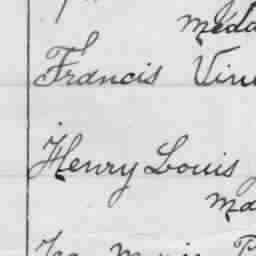 Meda
Francis Vin
Henry Louis
Ma